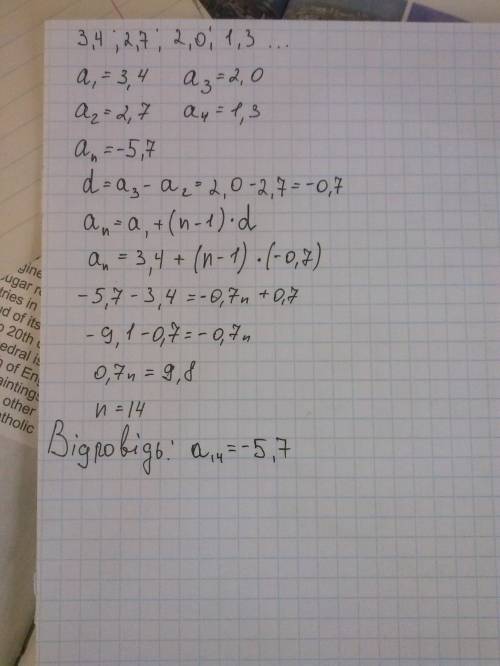 3,4; 2,7; 2,0; 1,3 ...
a₁ = 3,4 a₃ = 2,0
a₂ = 2,7 a₄ = 1,3
aₙ = -5,7
d = a₃ - a₂ = 2,0 - 2,7 = -0,7
aₙ = a₁ + (n-1) · d
aₙ = 3,4 + (n-1) · (-0,7)
-5,7 - 3,4 = -0,7n + 0,7
-9,1 - 0,7 = -0,7n
0,7n = 9,8
n = 14
Відповідь: a₁₄ = -5,7
ugar
tries in
d of its
20th
edral is
of En
aintings
other
tholic